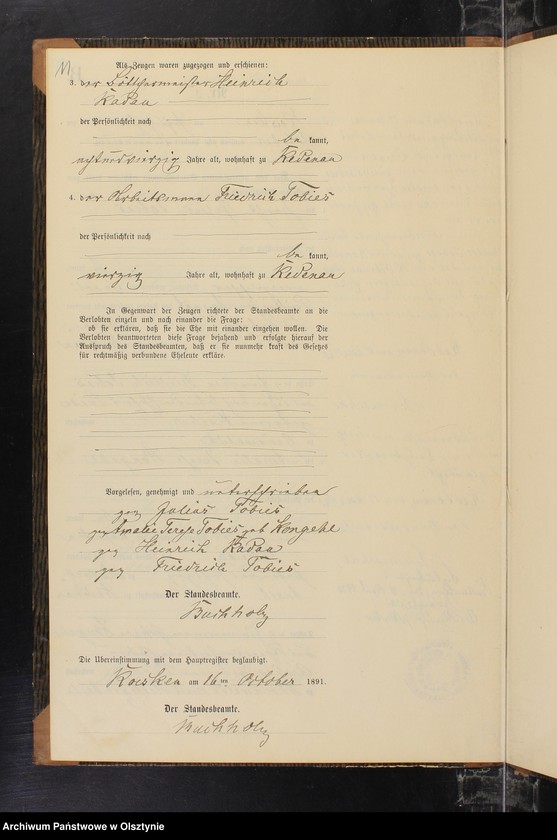 Als Zeugen waren zugezogen und erschienen:
3. der Böttchermeister Heinrich
Kadau
der Persönlichkeit nach
be kannt,
achtundvierzig Jahre alt, wohnhaft zu
4. der Arbeitsmann Friedrich Tobies
der Persönlichkeit nach
be kannt,
vierzig Jahre alt, wohnhaft zu
In Gegenwart der Zeugen richtete der Standesbeamte an die
Verlobten einzeln und nach einander die Frage:
ob sie erklären, daß sie die Ehe mit einander eingehen wollen. Die
Verlobten beantworteten diese Frage bejahend und erfolgte hierauf der
Ausspruch des Standesbeamten, daß er sie nunmehr kraft des Gesetzes
für rechtmäßig verbundene Eheleute erkläre.
Vorgelesen, genehmigt und unterschrieben
gez Julius Tobies
gez Amalie Terese Tobies geb Kongehl
gez Heinrich Kadau
gez Friedrich Tobies
Der Standesbeamte.
Buchholz
Die Übereinstimmung mit dem Hauptregister beglaubigt.
am 16ten October 1891.
Der Standesbeamte.
Buchholz
Archiwum Państwowe w Olsztynie